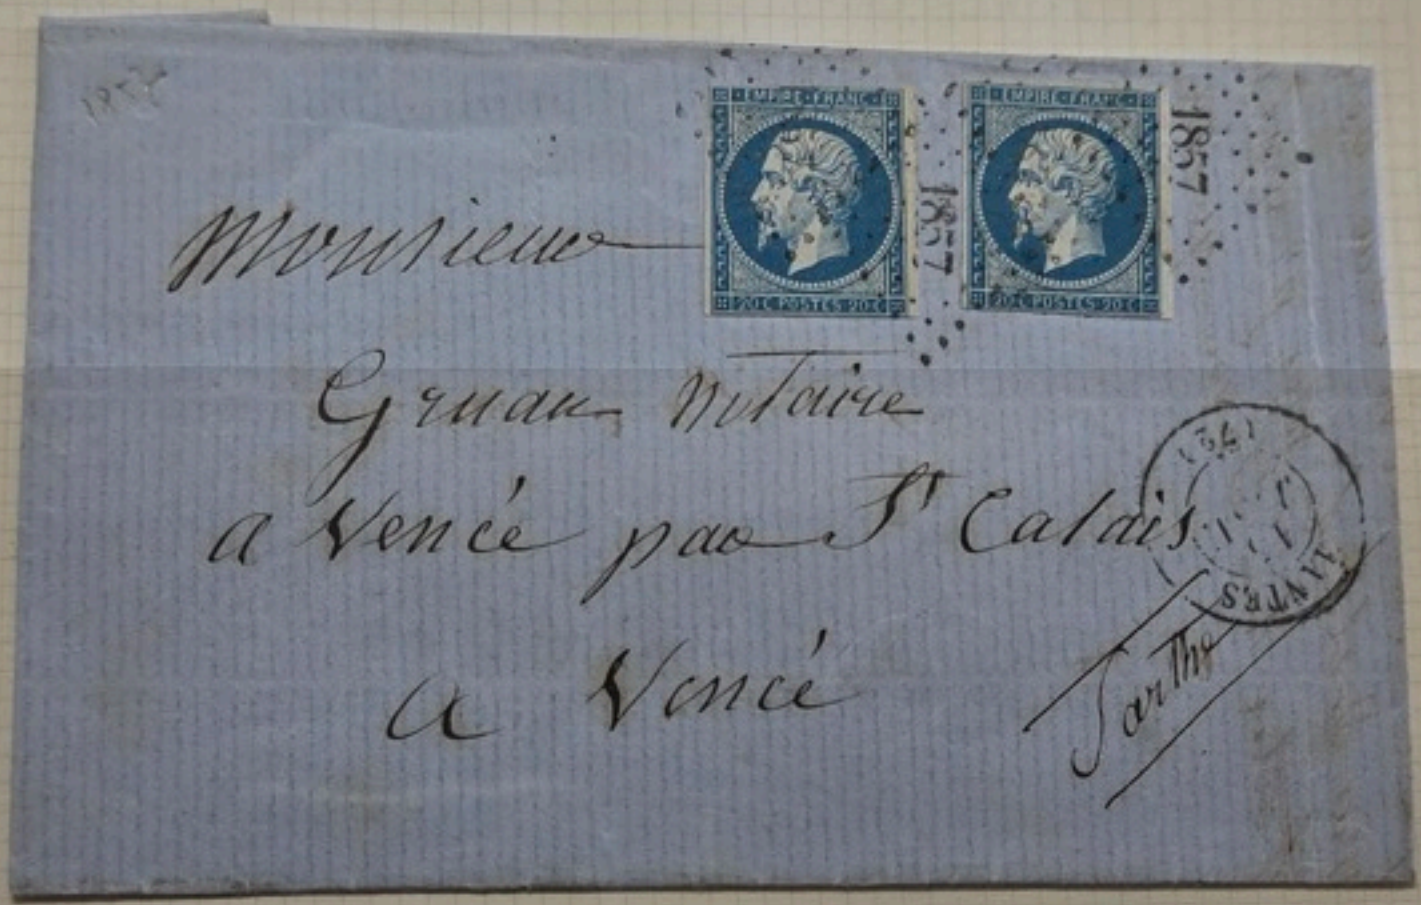 1857
EMPIRE · FRANC ·
20 C POSTES 20 C
1857
EMPIRE · FRANC ·
20 C POSTES 20 C
1857
Monsieur
Gruau notaire
a Vencé par St Calais
a Vencé
Sarthe